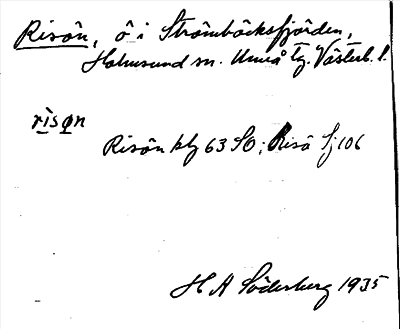 Risön, ö i Strömbäcksfjärden,
Holmsund sn. Umeå tg. Västerb. l.
risǫn
Risön ktg 63 SO; Risö Sj 106
H A Söderberg 1935